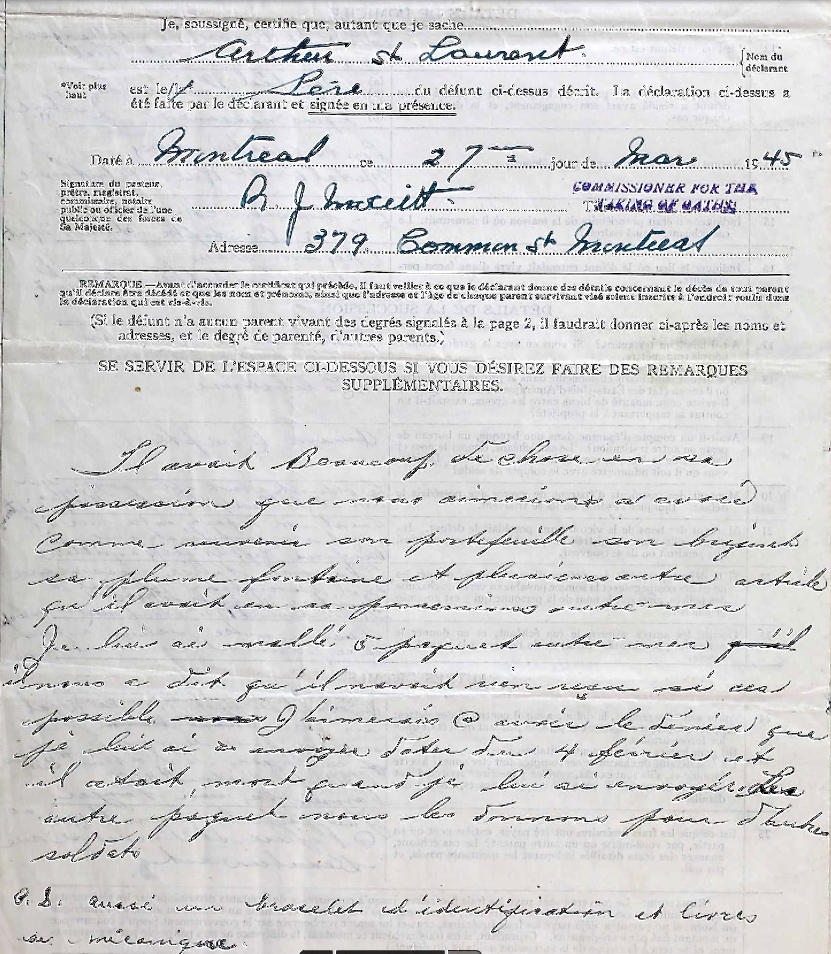 Je, soussigné, certifie que, autant que je sache
Arthur St Laurent
Nom du déclarant
*Voir plus haut
est le/l Père du défunt ci-dessus décrit. La déclaration ci-dessus a
été faite par le déclarant et signée en ma présence.
Daté à Montreal ce 27 jour de Mar 1945
Signature du pasteur,
prêtre, registrar,
commissaire, notaire
public ou officier de l'une
quelconque des forces de
Sa Majesté.
R J
COMMISSIONER FOR THE
TAKING OF OATHS
Adresse 379 Common St Montreal
REMARQUE.—Avant d'accorder le certificat qui précède, il faut veiller à ce que le déclarant donne des détails concernant le décès de tout parent
qu'il déclare être décédé et que les nom et prénoms, ainsi que l'adresse et l'âge de chaque parent survivant visé soient inscrits à l'endroit voulu dans
la déclaration qui est vis-à-vis.
(Si le défunt n'a aucun parent vivant des degrés signalés à la page 2, il faudrait donner ci-après les noms et
adresses, et le degré de parenté, d'autres parents.)
SE SERVIR DE L'ESPACE CI-DESSOUS SI VOUS DÉSIREZ FAIRE DES REMARQUES
SUPPLÉMENTAIRES.
Il avait Beaucoup de chose en sa
possession que nous aimerions a avoir
comme souvenir son portefeuille son
sa plume fontaine et plusieurs autre article
qu'il avait en sa possession outre-mer
Je lui ai mallé 5 paquet outre mer qu'il
il nous a dit qu'il navait rien reçu si ces
possible J'aimerais a avoir le dernier que
je lui ai envoyer dater du 4 février et
il était mort quand je lui ai envoyér. Les
autre paquet nous les donnons pour d'autres
soldats
P.S. aussi un bracelet d'identification et livres
de mécanique.